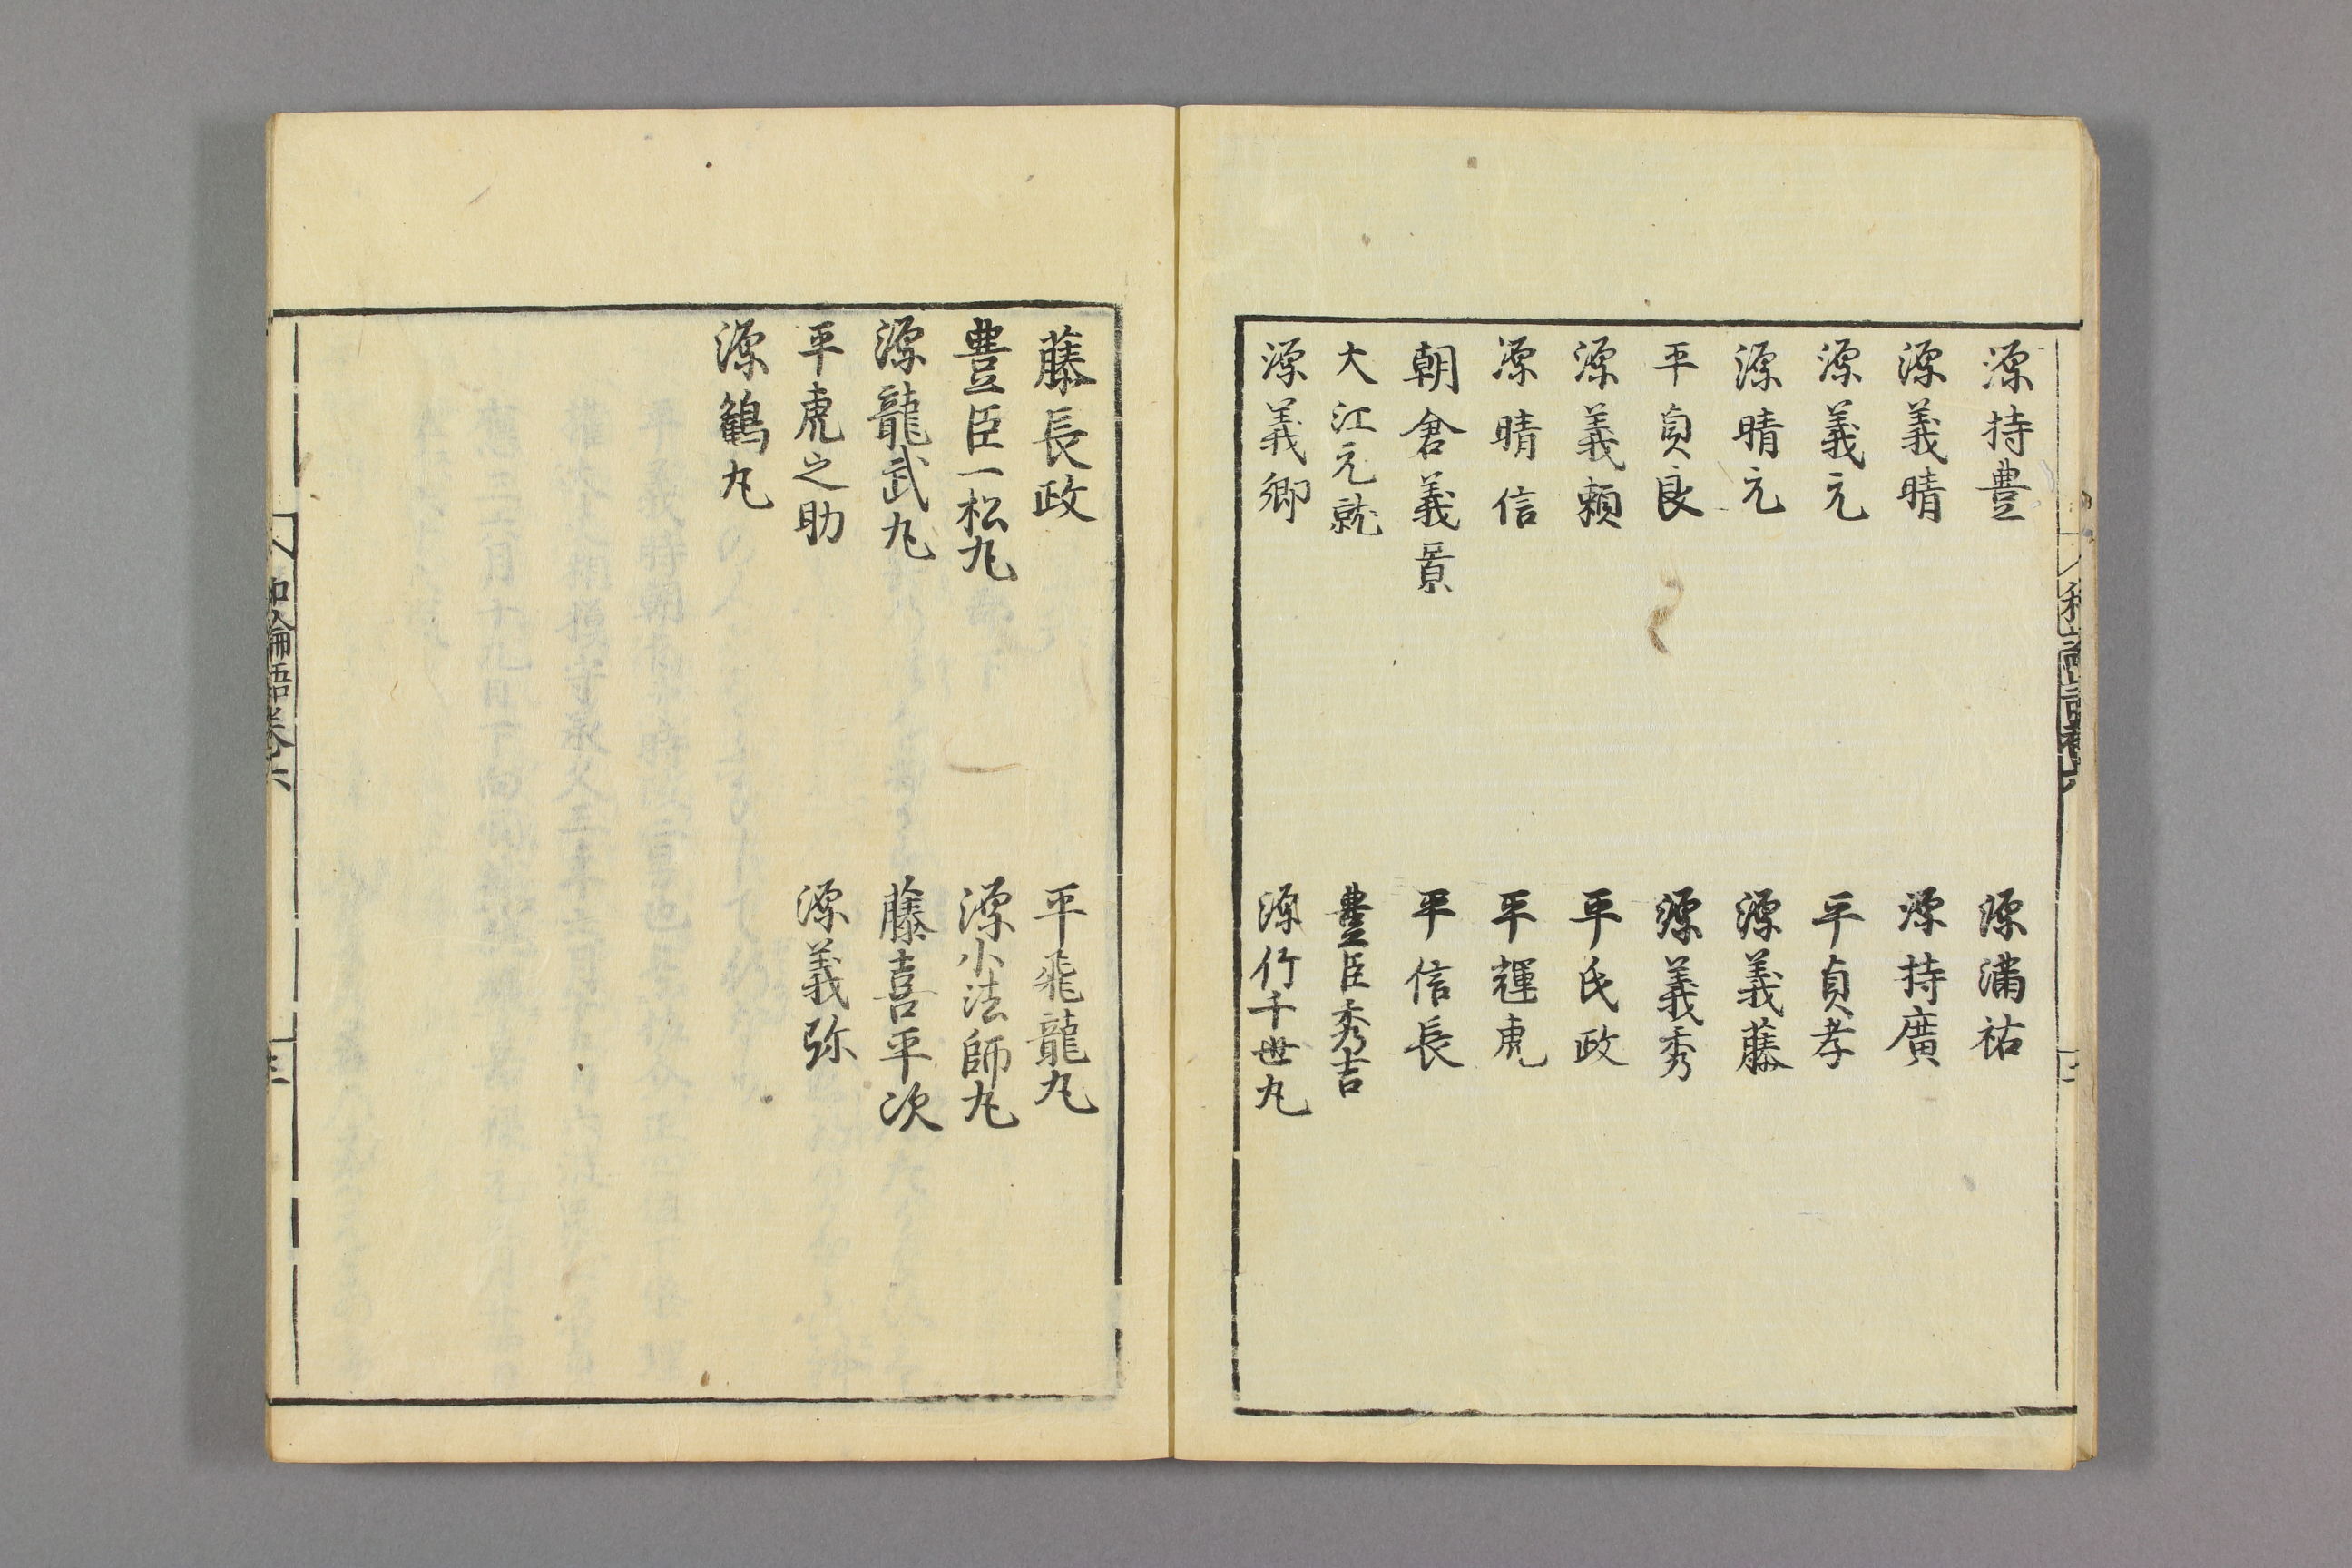 源持豊
源満祐
源義晴
源持廣
源義元
平貞孝
源晴元
源義藤
平貞良
源義秀
源義頼
平氏政
源晴信
平輝虎
朝倉義景
平信長
大江元就
豊臣秀吉
源義郷
源竹千世丸
藤長政
平飛龍丸
豊臣一松丸
源小法師丸
源龍武丸
藤喜平次
平虎之助
源義弥
源鶴丸
和論語巻六